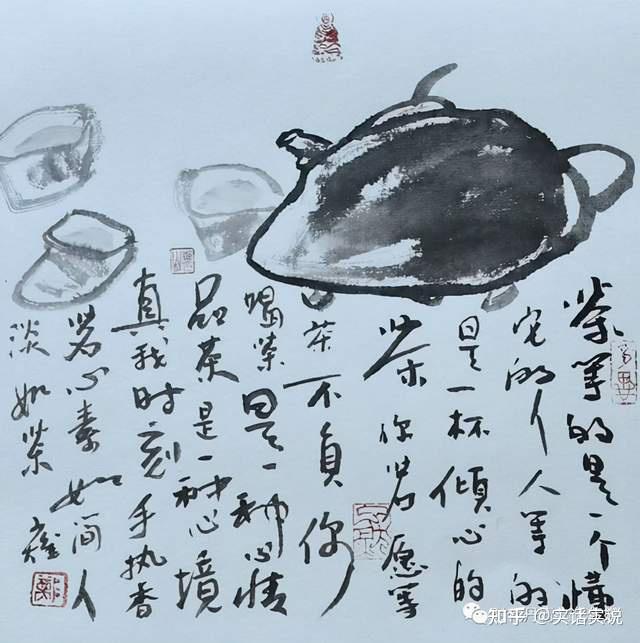 茶等的是一个懂
它的人人等的
是一杯倾心的
茶你若愿等
茶不负你
喝茶是一种心情
品茶是一种心境
真我时刻手执香
茗心素如简人
淡如茶
知乎 @实话实说